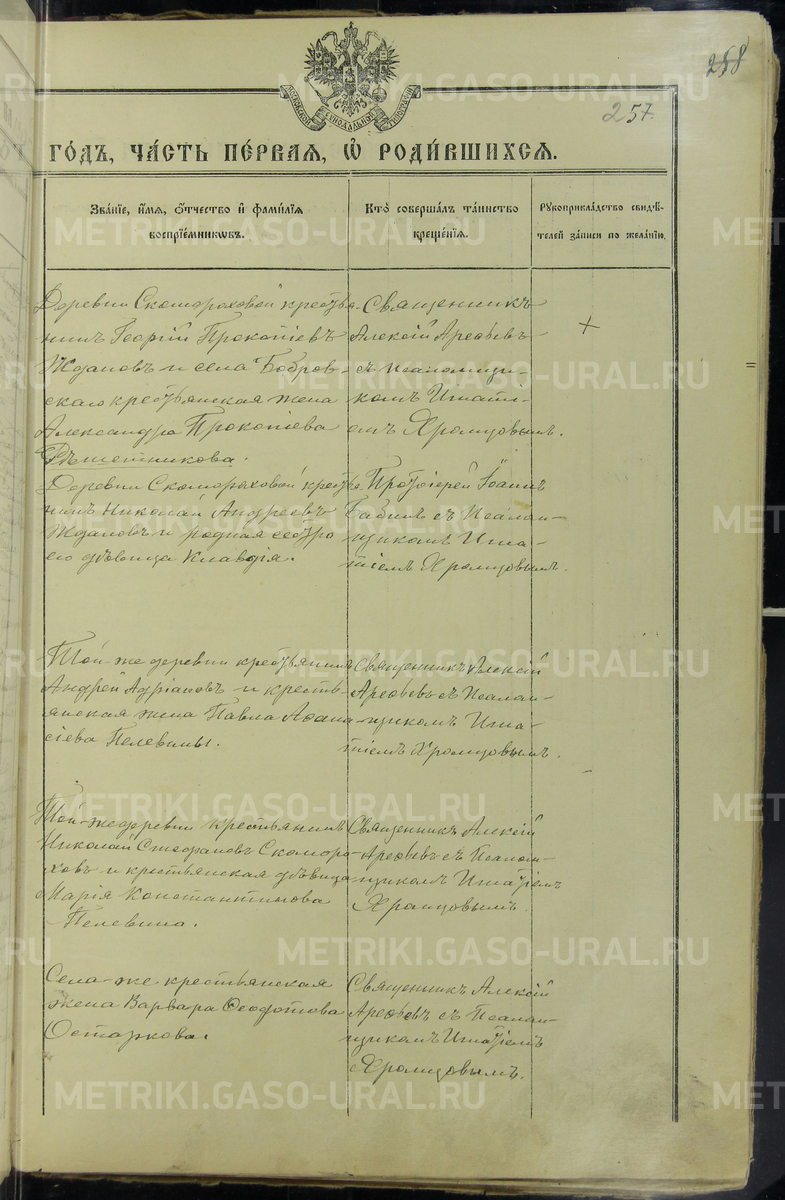 258
257.
МОСКОВСКОЙ СѴНОДАЛЬНОЙ ТИПОГРАФІИ
ГО́ДЪ, ЧА́СТЬ ПЕ́РВАЯ, Ѿ РОДИ́ВШИХСЯ.
Зва́ніе, и́мя, о́тчество и фами́лія
воспріе́мниковъ.
Кто̀ соверша́лъ та́инство
креще́нія.
Рукоприкла́дство свидѣ́-
телей за́писи по жела́нію.
Деревни Скомороховой крестья-
нинъ Георгій Прокопіевъ
Ждановъ и села Бобров-
скаго крестьянская жена
Александра Прокопіева
Рѣшетникова.
Священникъ
Алексій Арефьевъ
съ Псаломщи-
комъ Игнаті-
емъ Хромцовымъ.
+
Деревни Скомороховой крестья
нинъ Николай Андреевъ
Ждановъ и родная сестра
его дѣвица Клавдія.
Протоіерей Іоаннъ
Бабинъ съ Псалом-
щикомъ Игна-
тіемъ Хромцовымъ.
Той-же деревни крестьянинъ
Андрей Адріановъ и кресть-
янская жена Павла Афана-
сіева Пелевины.
Священникъ Алексій
Арефьевъ съ Псалом-
щикомъ Игна-
тіемъ Хромцовымъ.
Той-же деревни крестьянинъ
Николай Стефановъ Скоморо-
ховъ и крестьянская дѣвица
Марія Константинова
Пелевина.
Священникъ Алексій
Арефьевъ съ Псалом-
щикомъ Игнатіемъ
Хромцовымъ.
Села-же крестьянская
жена Варвара Феодотова
Осталкова.
Священникъ Алексій
Арефьевъ съ Псалом-
щикомъ Игнатіемъ
Хромцовымъ.
METRIKI.GASO-URAL.RU